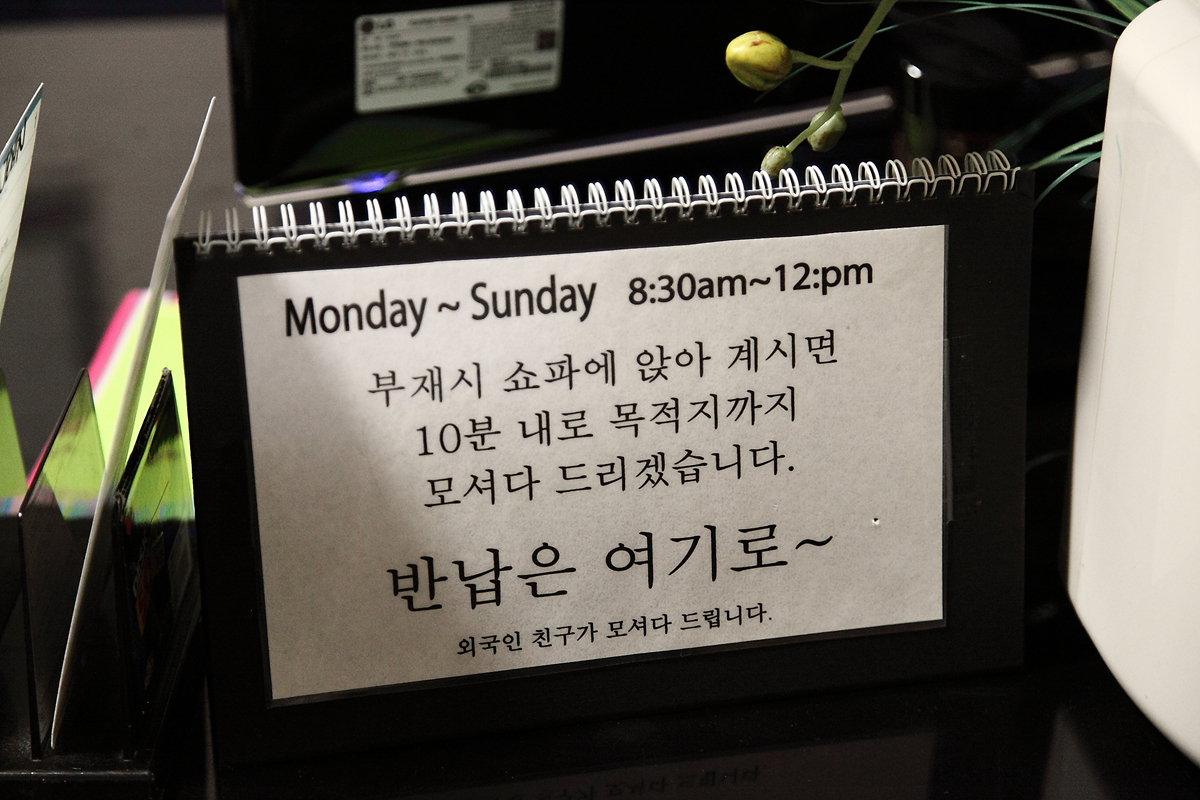 Monday ~ Sunday 8:30am~12:pm
부재시 쇼파에 앉아 계시면
10분 내로 목적지까지
모셔다 드리겠습니다.
반납은 여기로~
외국인 친구가 모셔다 드립니다.
LG